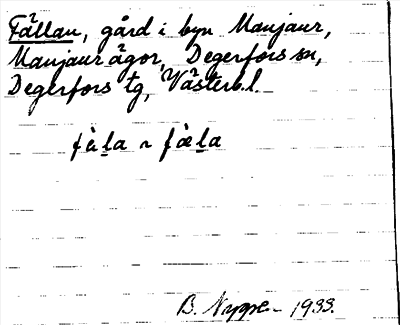 Fällan, gård i byn Manjaur,
Manjaur ägor, Degerfors sn,
Degerfors tg, Västerb.l.
fä̀l̲a ~ fæ̀l̲a
B. 1933.